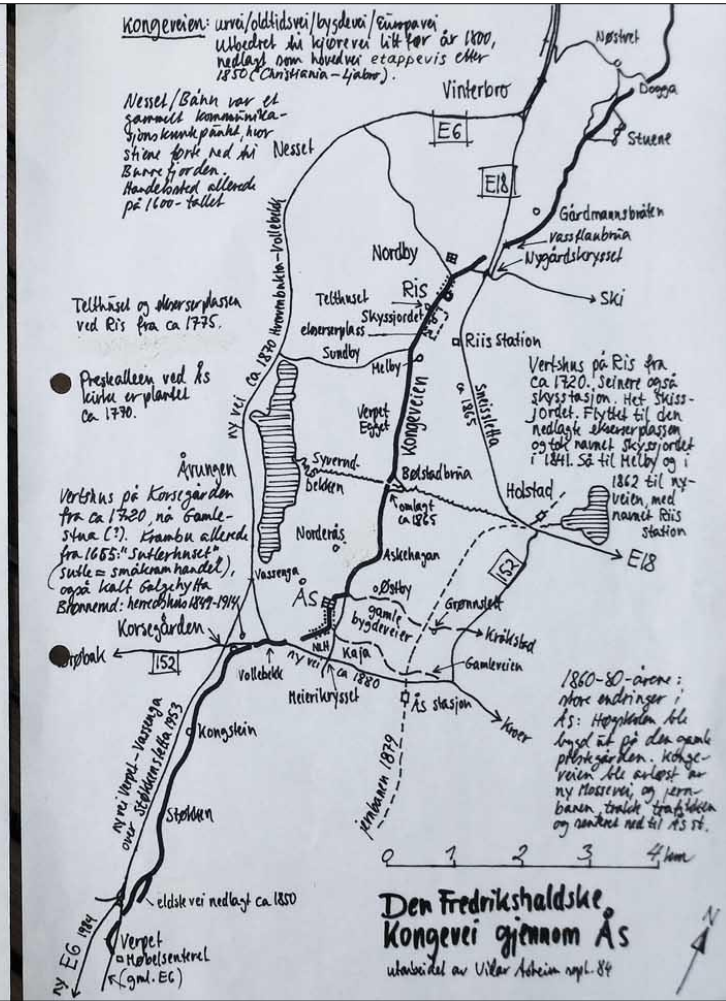 Kongeveien: urvei/oldtidsvei/bygdevei/Europavei
Utbedret til kjørevei litt før år 1800,
nedlagt som hovedvei etappevis etter
1850 (Christiania-Ljabro).
Nesset/Bånn var et
gammelt kommunika-
sjonsknutepunkt, hvor
stiene førte ned til
Bunnefjorden.
Handelssted allerede
på 1600-tallet
Nøstvet
Dogga
Stuene
Vinterbro
E6
Nesset
E18
Gårdmannsbråten
Vassflaubrua
Nygårdskrysset
Nordby
Ski
Ris
Telthuset
Skyssjordet
ekserserplass
Riis Station
Telthuset og ekserserplassen
ved Ris fra ca 1775.
ny vei ca 1870 Kvernbakkn-Vollebekk
Sundby
Melby
Prestealleen ved Ås
kirke er plantet
ca 1770.
Verpet
Egget
Kongeveien
Sneissletta
ca 1865
Vertshus på Ris fra
ca 1720. Seinere også
skysstasjon. Het Skiss-
jordet. Flyttet til den
nedlagte ekserserplassen
og tok navnet Skyssjordet
i 1841. Så til Melby og i
1862 til ny-
veien, med
navnet Riis
station
Årungen
Syverud-
bekken
Bølstadbrua
omlagt
ca 1865
Holstad
Vertshus på Korsegården
fra ca 1720, nå Gamle-
stua (?). Krambu allerede
fra 1655: "Sutlerhuset"
(sutle = småkramhandel),
også kalt Galgehytta
Brønnerud: herredshus 1849-1914
Norderås
Askehagan
E18
Vassenga
152
Ås
Østby
gamle
bygdeveier
Grønnslett
Kråkstad
Korsegården
Drøbak
152
Vollebekk
NLH
ny vei ca 1880
Kaja
Gamleveien
Meierikrysset
Ås stasjon
Kroer
Kongstein
ny vei Verpet-Vassenga
over Støkkensletta 1953
jernbanen 1879
Støkken
1860-80-årene:
store endringer i
Ås: Høgskolen ble
bygd ut på den gamle
prestegården. Konge-
veien ble avløst av
ny Mossevei, og jern-
banen trakk trafikken
og senteret ned til Ås st.
0 1 2 3 4 km
eldste vei nedlagt ca 1850
Verpet
Møbelsenteret
(gml. E6)
ny E6 1984
Den Fredrikshaldske
Kongevei gjennom Ås
N
utarbeidet av Vikar Åsheim sept. 84